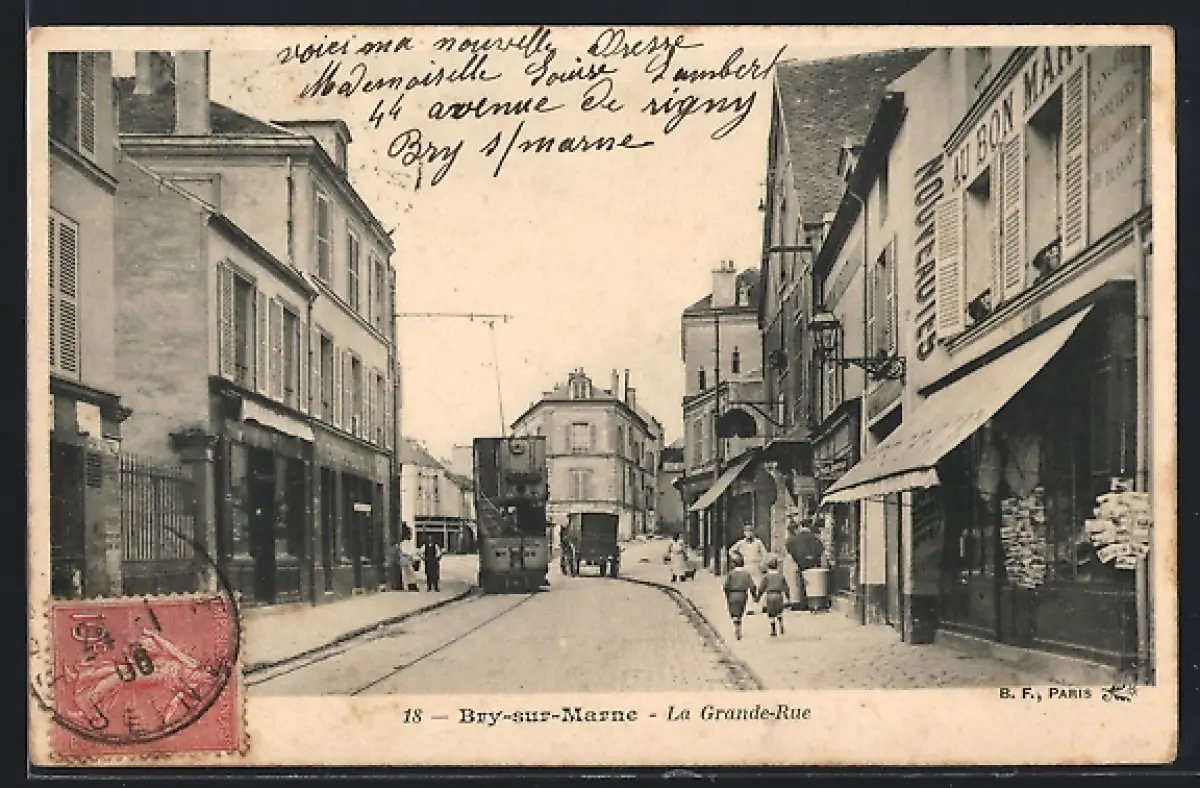 voici ma nouvelle Dresse
Mademoiselle Louise Lambert
44 avenue de rigny
Bry s/marne
AU BON MARC
NOUVEAUTÉS
10
06
18 — Bry-sur-Marne - La Grande-Rue
B. F., PARIS